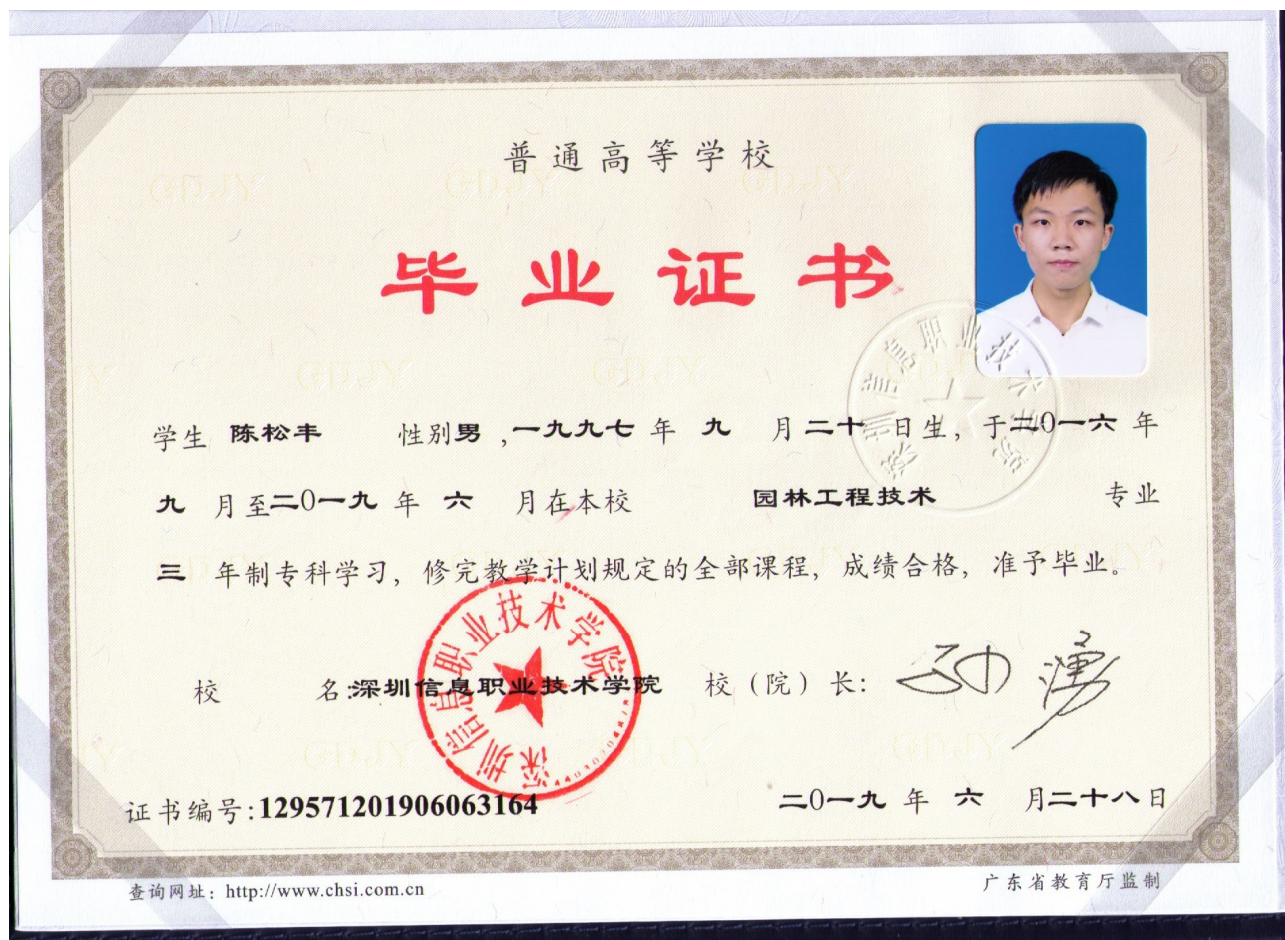 普通高等学校
毕业证书
学生 陈松丰 性别男，一九九七年 九 月二十日生，于二〇一六年
九 月至二〇一九 年 六 月在本校 园林工程技术 专业
三 年制专科学习，修完教学计划规定的全部课程，成绩合格，准予毕业。
校 名:深圳信息职业技术学院 校（院）长: 孙湧
深圳信息职业技术学院
证书编号:129571201906063164 二〇一九 年 六 月二十八日
查询网址：http://www.chsi.com.cn 广东省教育厅监制